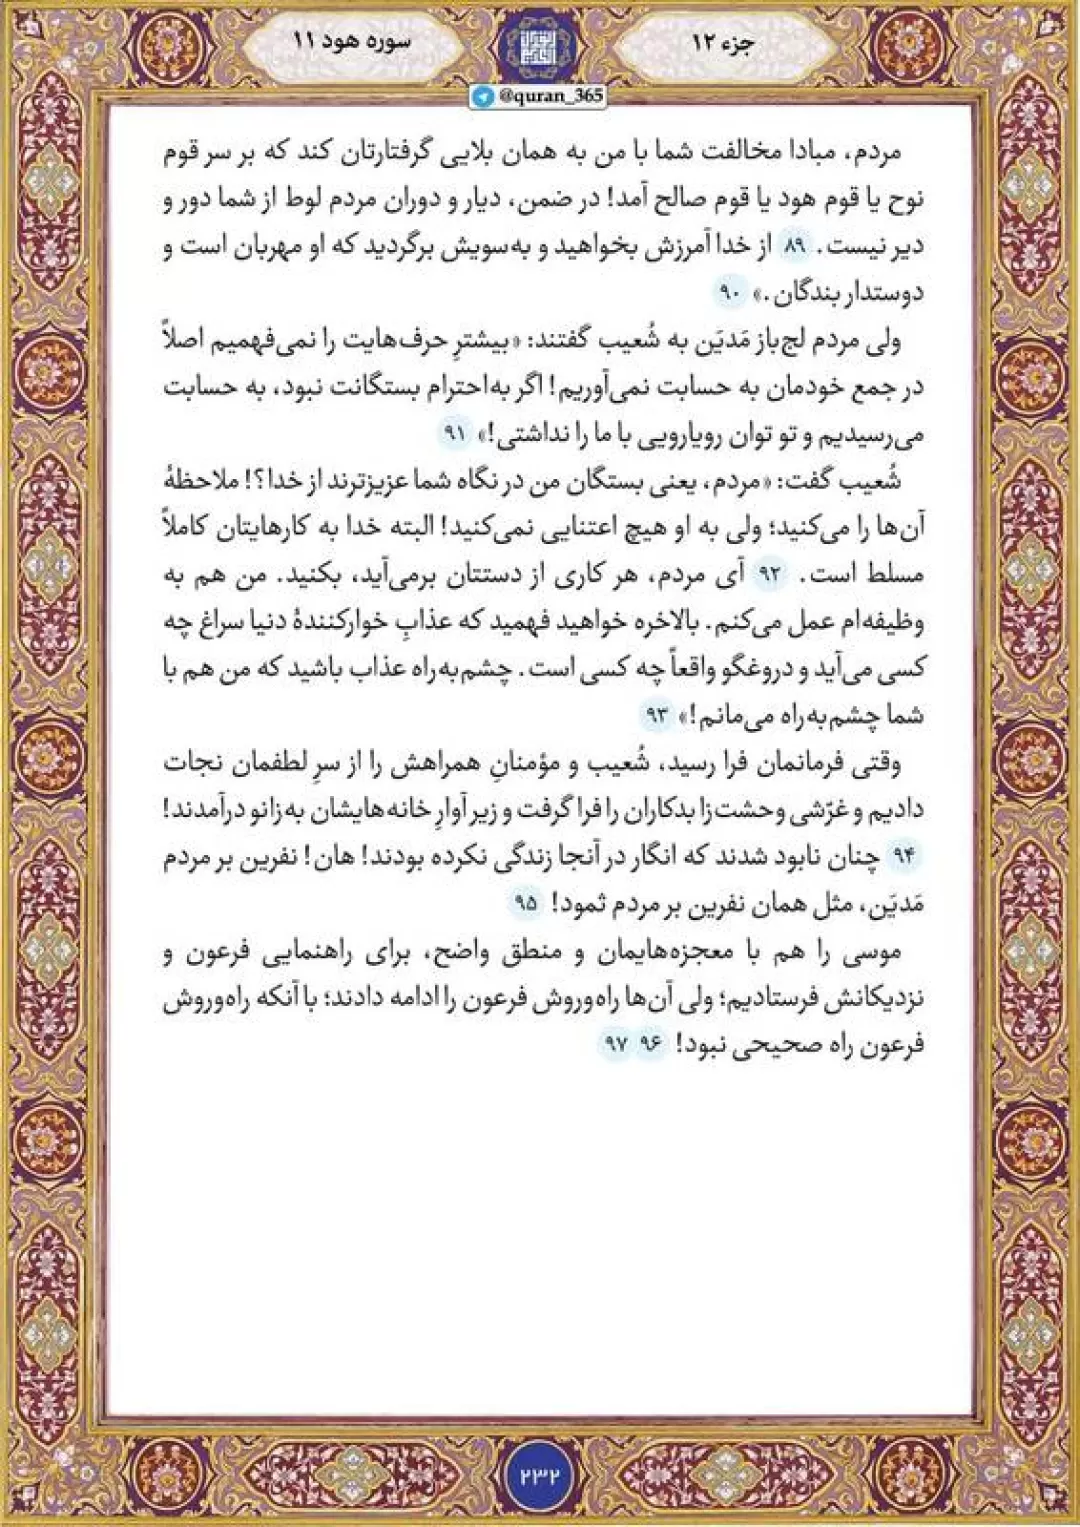 جزء ۱۲
سوره هود ۱۱
@quran_365
مردم، مبادا مخالفت شما با من به همان بلایی گرفتارتان کند که بر سر قوم
نوح یا قوم هود یا قوم صالح آمد! در ضمن، دیار و دوران مردم لوط از شما دور و
دیر نیست. ۸۹ از خدا آمرزش بخواهید و به‌سویش برگردید که او مهربان است و
دوستدار بندگان.» ۹۰
ولی مردم لج‌باز مَدیَن به شُعیب گفتند: «بیشترِ حرف‌هایت را نمی‌فهمیم اصلاً
در جمع خودمان به حسابت نمی‌آوریم! اگر به‌احترام بستگانت نبود، به حسابت
می‌رسیدیم و تو توان رویارویی با ما را نداشتی!» ۹۱
شُعیب گفت: «مردم، یعنی بستگان من در نگاه شما عزیزترند از خدا؟! ملاحظهٔ
آن‌ها را می‌کنید؛ ولی به او هیچ اعتنایی نمی‌کنید! البته خدا به کارهایتان کاملاً
مسلط است. ۹۲ آی مردم، هر کاری از دستتان برمی‌آید، بکنید. من هم به
وظیفه‌ام عمل می‌کنم. بالاخره خواهید فهمید که عذابِ خوارکنندهٔ دنیا سراغ چه
کسی می‌آید و دروغگو واقعاً چه کسی است. چشم‌به‌راه عذاب باشید که من هم با
شما چشم‌به‌راه می‌مانم!» ۹۳
وقتی فرمانمان فرا رسید، شُعیب و مؤمنانِ همراهش را از سرِ لطفمان نجات
دادیم و غرّشی وحشت‌زا بدکاران را فرا گرفت و زیر آوارِ خانه‌هایشان به‌زانو درآمدند!
۹۴ چنان نابود شدند که انگار در آنجا زندگی نکرده بودند! هان! نفرین بر مردم
مَدیَن، مثل همان نفرین بر مردم ثمود! ۹۵
موسی را هم با معجزه‌هایمان و منطق واضح، برای راهنمایی فرعون و
نزدیکانش فرستادیم؛ ولی آن‌ها راه‌وروش فرعون را ادامه دادند؛ با آنکه راه‌وروش
فرعون راه صحیحی نبود! ۹۶ ۹۷
۲۳۲